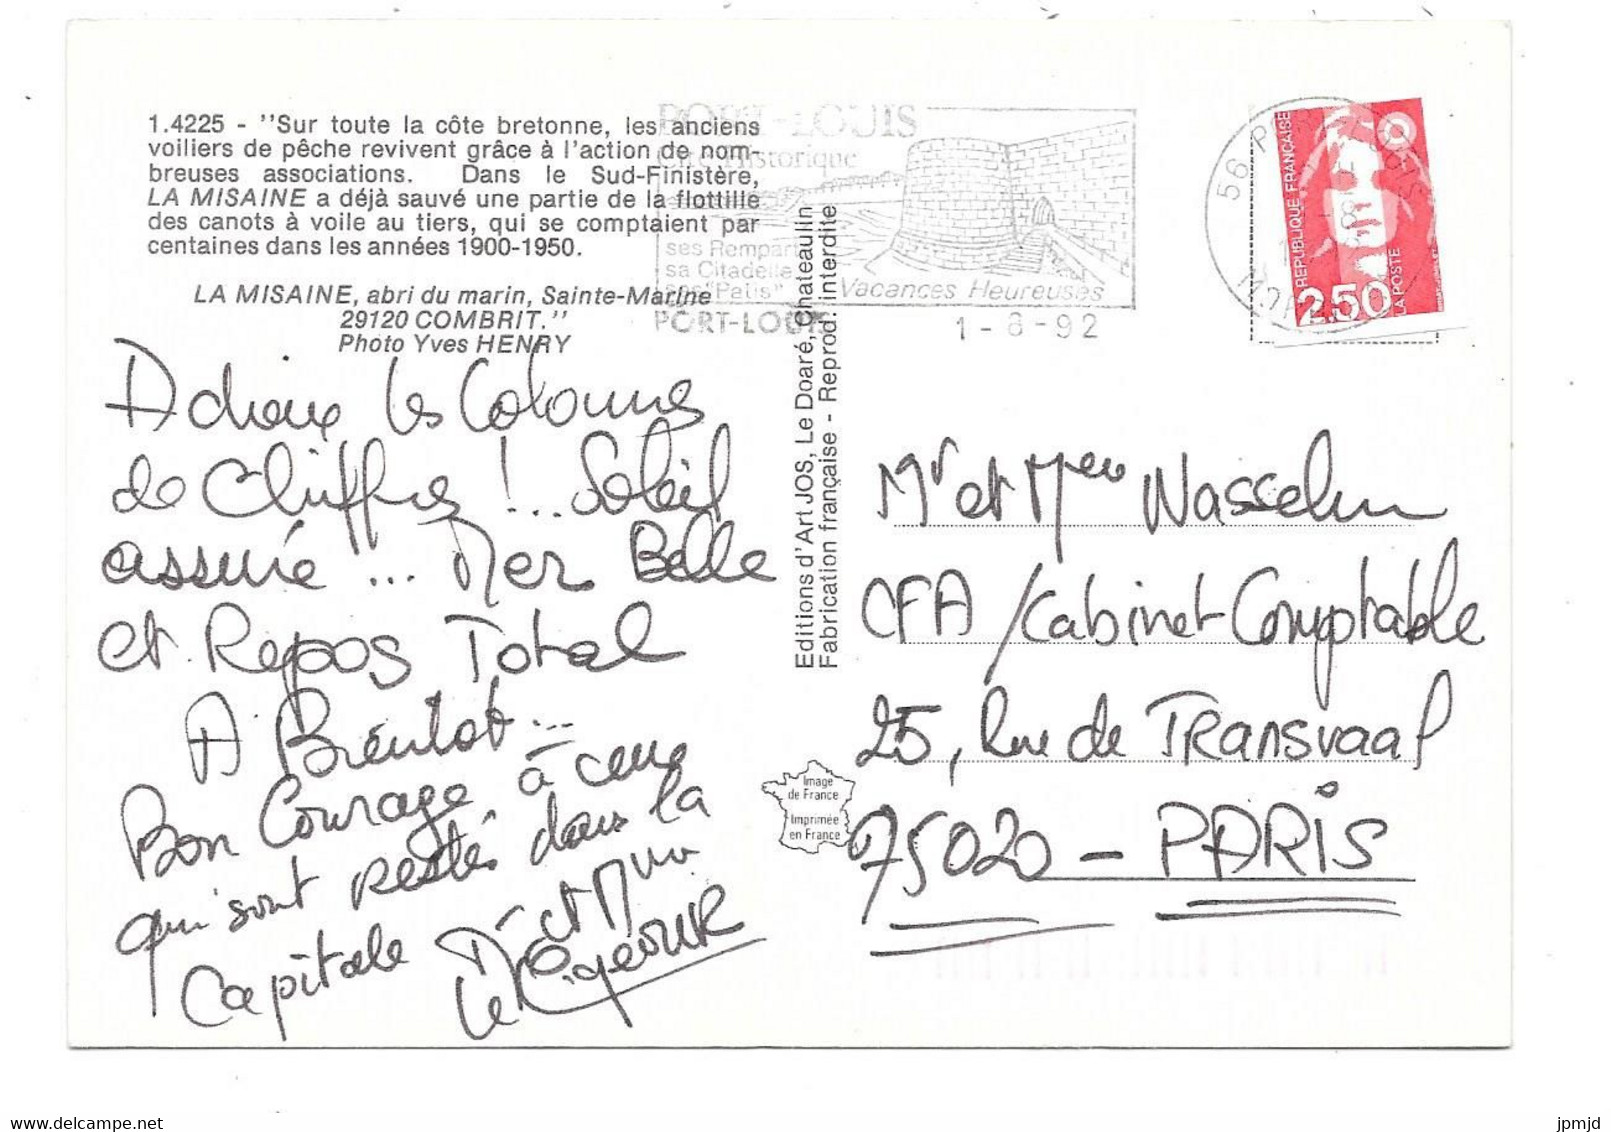 1.4225 - "Sur toute la côte bretonne, les anciens
voiliers de pêche revivent grâce à l'action de nom-
breuses associations. Dans le Sud-Finistère,
LA MISAINE a déjà sauvé une partie de la flottille
des canots à voile au tiers, qui se comptaient par
centaines dans les années 1900-1950.
LA MISAINE, abri du marin, Sainte-Marine
29120 COMBRIT."
Photo Yves HENRY
Adieux les Colonnes
de Chiffres !... Soleil
assuré ... Mer Belle
et Repos Total
A Bientot...
Bon Courage, à ceux
qui sont restés dans la
Capitale
Mr et Mme
Editions d'Art JOS, Le Doaré, Chateaulin
Fabrication française - Reprod. interdite
PORT-LOUIS
Cité Historique
ses Remparts
sa Citadelle
ses "Patis"
Vacances Heureuses
PORT-LOUIS
1-8-92
56 PORT LOUIS
MORBIHAN
REPUBLIQUE FRANÇAISE
2,50
LA POSTE
Mr et Mme Wasselin
CFA / Cabinet Comptable
25, Rue de Transvaal
75020 - PARIS
Image
de France
Imprimée
en France
delcampe.net
jpmjd